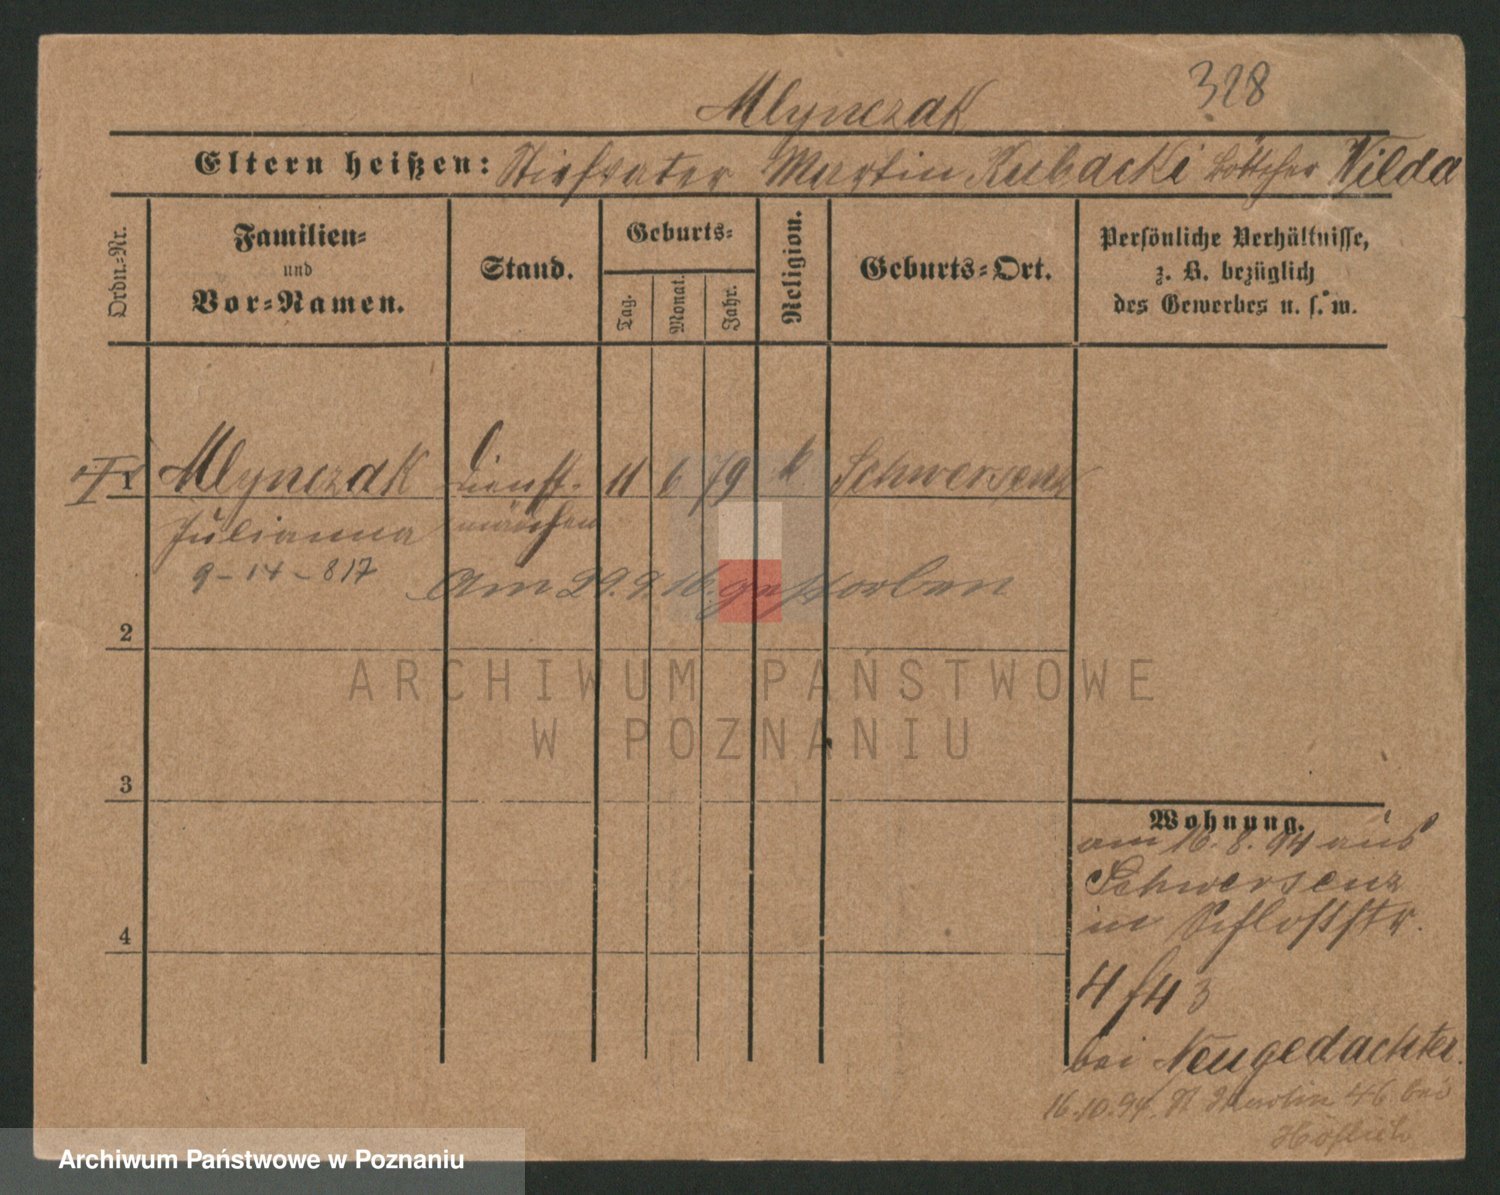 328
Mlynczak
Eltern heißen: Stiefvater Martin Kubacki Böttcher Wilda
Ordn.-Nr.
Familien-
und
Vor-Namen.
Stand.
Geburts-
Tag.
Monat.
Jahr.
Religion.
Geburts-Ort.
Persönliche Verhältnisse,
z. B. bezüglich
des Gewerbes u. s. w.
Mlynczak Dienst- 11 6 79 k. Schwersenz
Julianna mädchen
9-14-817
Am 29.9.16. gestorben
2
ARCHIWUM PAŃSTWOWE
W POZNANIU
3
4
Wohnung.
am 16.8.94 aus
Schwersenz
in Schloßstr.
4 f43
bei Neugedachter.
16.10.94. St Martin 46 bei
Höflich
Archiwum Państwowe w Poznaniu